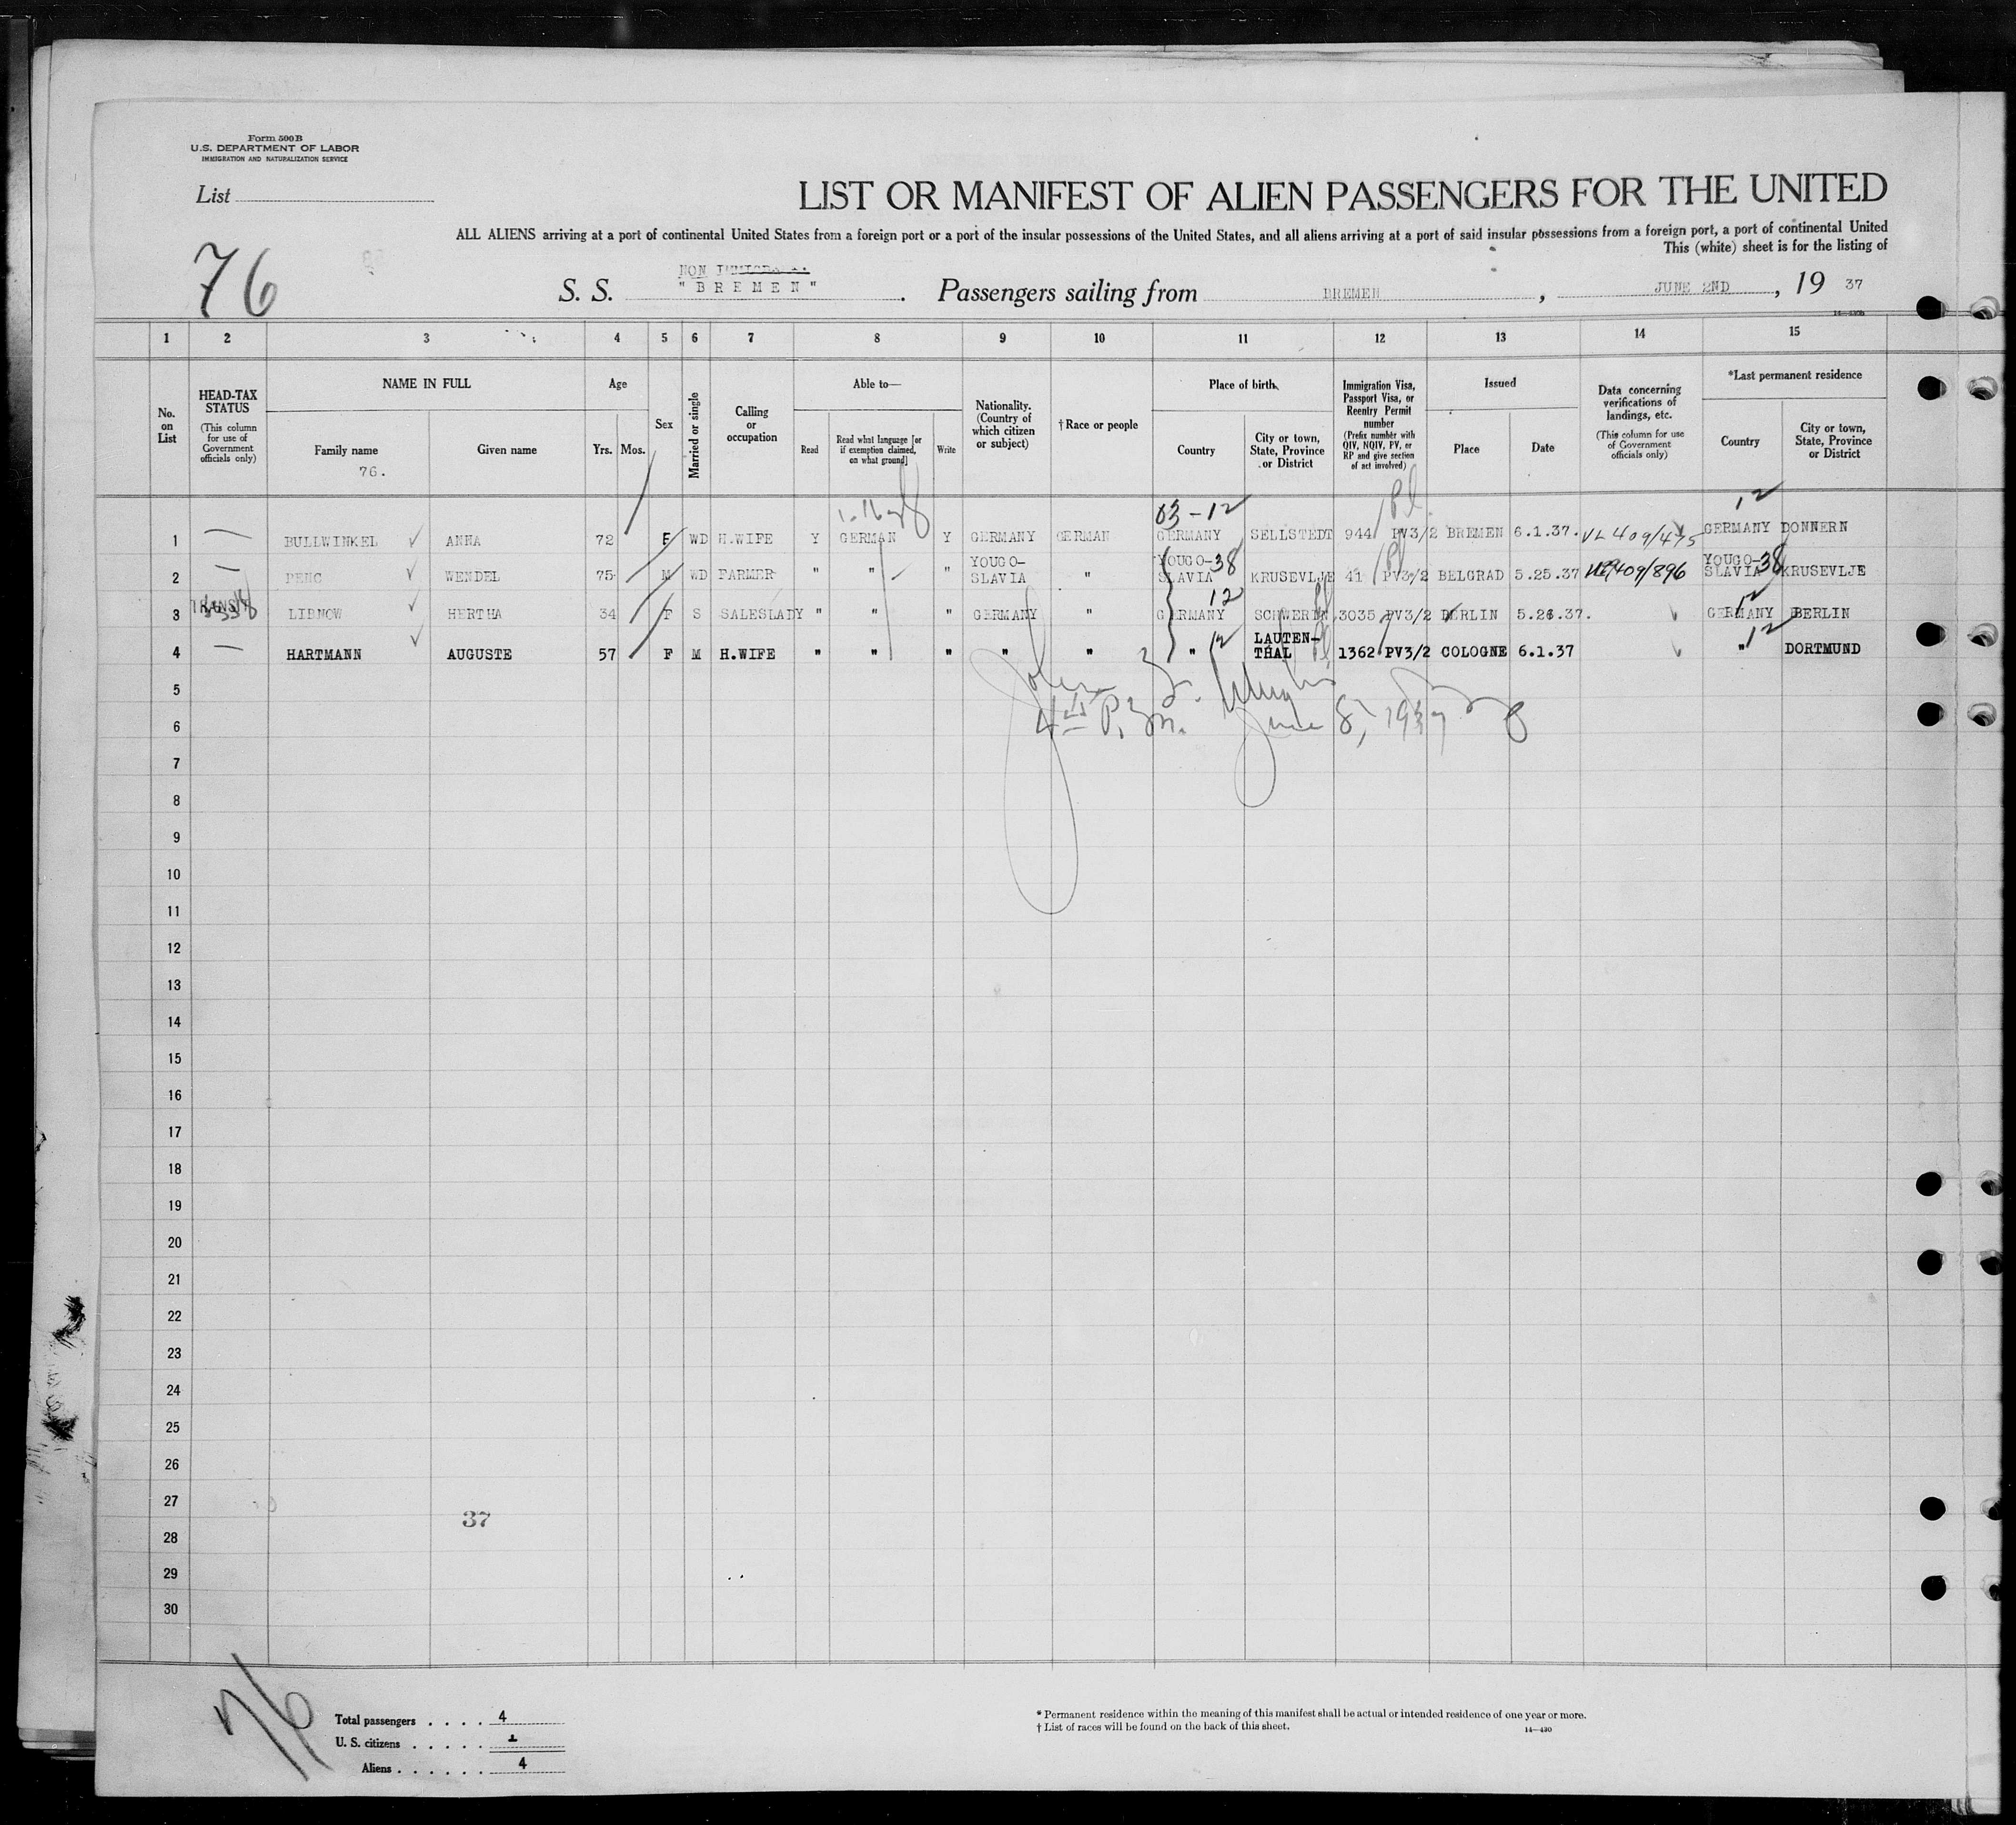 Form 500 B
U.S. DEPARTMENT OF LABOR
IMMIGRATION AND NATURALIZATION SERVICE
List
LIST OR MANIFEST OF ALIEN PASSENGERS FOR THE UNITED
ALL ALIENS arriving at a port of continental United States from a foreign port or a port of the insular possessions of the United States, and all aliens arriving at a port of said insular possessions from a foreign port, a port of continental United
This (white) sheet is for the listing of
76
NON
S. S. "BREMEN". Passengers sailing from BREMEN, JUNE 2ND, 19 37
1 2 3 4 5 6 7 8 9 10 11 12 13 14 15
No. on List
HEAD-TAX STATUS
(This column for use of Government officials only)
NAME IN FULL
Family name
76.
Given name
Age
Yrs. Mos.
Sex
Married or single
Calling or occupation
Able to—
Read
Read what language [or if exemption claimed, on what ground]
Write
Nationality. (Country of which citizen or subject)
†Race or people
Place of birth
Country
City or town, State, Province or District
Immigration Visa, Passport Visa, or Reentry Permit number
(Prefix number with QIV, NQIV, PV, or RP and give section of act involved)
Issued
Place
Date
Data concerning verifications of landings, etc.
(This column for use of Government officials only)
*Last permanent residence
Country
City or town, State, Province or District
03-12
12
1 — BULLWINKEL ANNA 72 F WD H.WIFE Y GERMAN Y GERMANY GERMAN GERMANY SELLSTEDT 944 PV3/2 BREMEN 6.1.37. VL 409/435 GERMANY DONNERN
2 — PENC WENDEL 75 M WD FARMER " " " YOUGO-SLAVIA " YOUGO-SLAVIA 38 KRUSEVLJE 41 PV3/2 BELGRAD 5.25.37 409/896 YOUGO-SLAVIA 38 KRUSEVLJE
3 TRANSIT LIBNOW HERTHA 34 F S SALESLADY " " " GERMANY " GERMANY 12 SCHWERIN 3035 PV3/2 BERLIN 5.26.37. GERMANY 12 BERLIN
4 — HARTMANN AUGUSTE 57 F M H.WIFE " " " " " " 12 LAUTEN-THAL 1362 PV3/2 COLOGNE 6.1.37 " 12 DORTMUND
June 8, 1937
5
6
7
8
9
10
11
12
13
14
15
16
17
18
19
20
21
22
23
24
25
26
27
37
28
29
30
76
Total passengers . . . . 4
U. S. citizens . . . . .
Aliens . . . . . . 4
* Permanent residence within the meaning of this manifest shall be actual or intended residence of one year or more.
† List of races will be found on the back of this sheet.
14—430